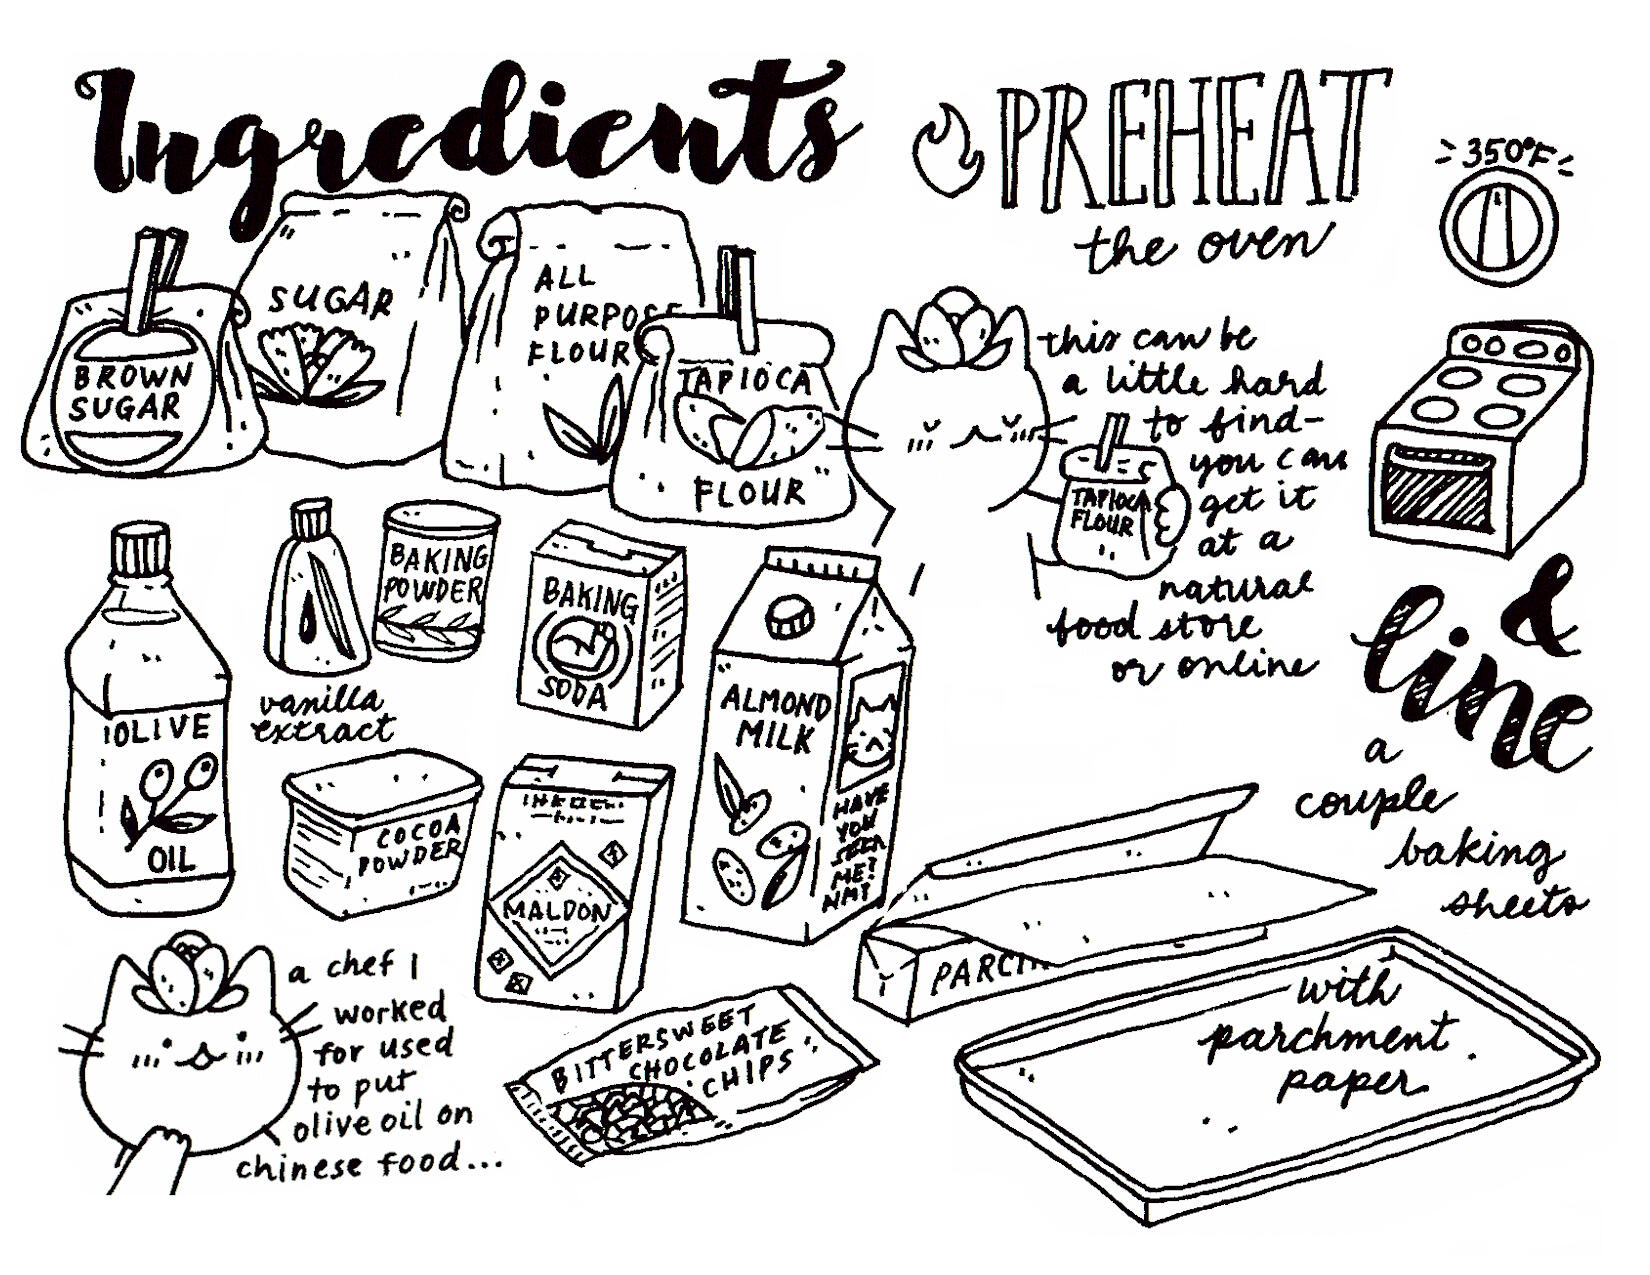 Ingredients
BROWN
SUGAR
SUGAR
ALL
PURPOSE
FLOUR
TAPIOCA
FLOUR
OLIVE
OIL
vanilla
extract
BAKING
POWDER
BAKING
SODA
ALMOND
MILK
HAVE
YOU
SEEN
ME?
COCOA
POWDER
MALDON
BITTERSWEET
CHOCOLATE
CHIPS
a chef I
worked
for used
to put
olive oil on
chinese food...
PREHEAT
the oven
350°F
this can be
a little hard
to find-
you can
get it
at a
natural
food store
or online
TAPIOCA
FLOUR
&
line
a
couple
baking
sheets
PARCH
with
parchment
paper